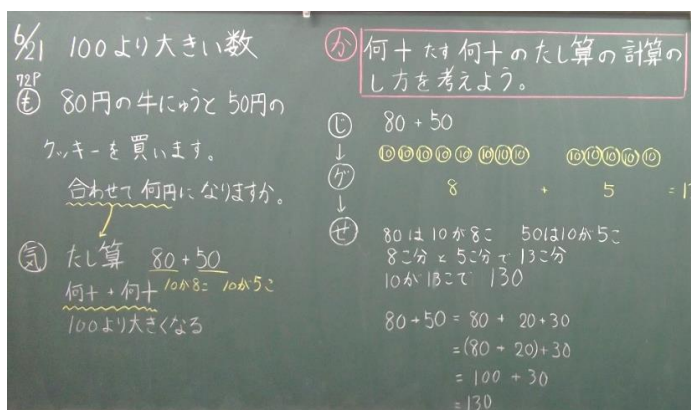 6/21 100より大きい数
72P
も 80円の牛にゅうと50円の
クッキーを買います。
合わせて何円になりますか。
気 たし算 80+50
何十+何十 10が8こ 10が5こ
100より大きくなる
か 何十たす何十のたし算の計算の
し方を考えよう。
じ 80+50
↓ ⑩⑩⑩⑩⑩ ⑩⑩⑩ ⑩⑩⑩⑩⑩
ゲ 8 + 5 =1
↓
せ 80は10が8こ 50は10が5こ
8こ分と5こ分で13こ分
10が13こで 130
80+50=80+20+30
=(80+20)+30
=100+30
=130